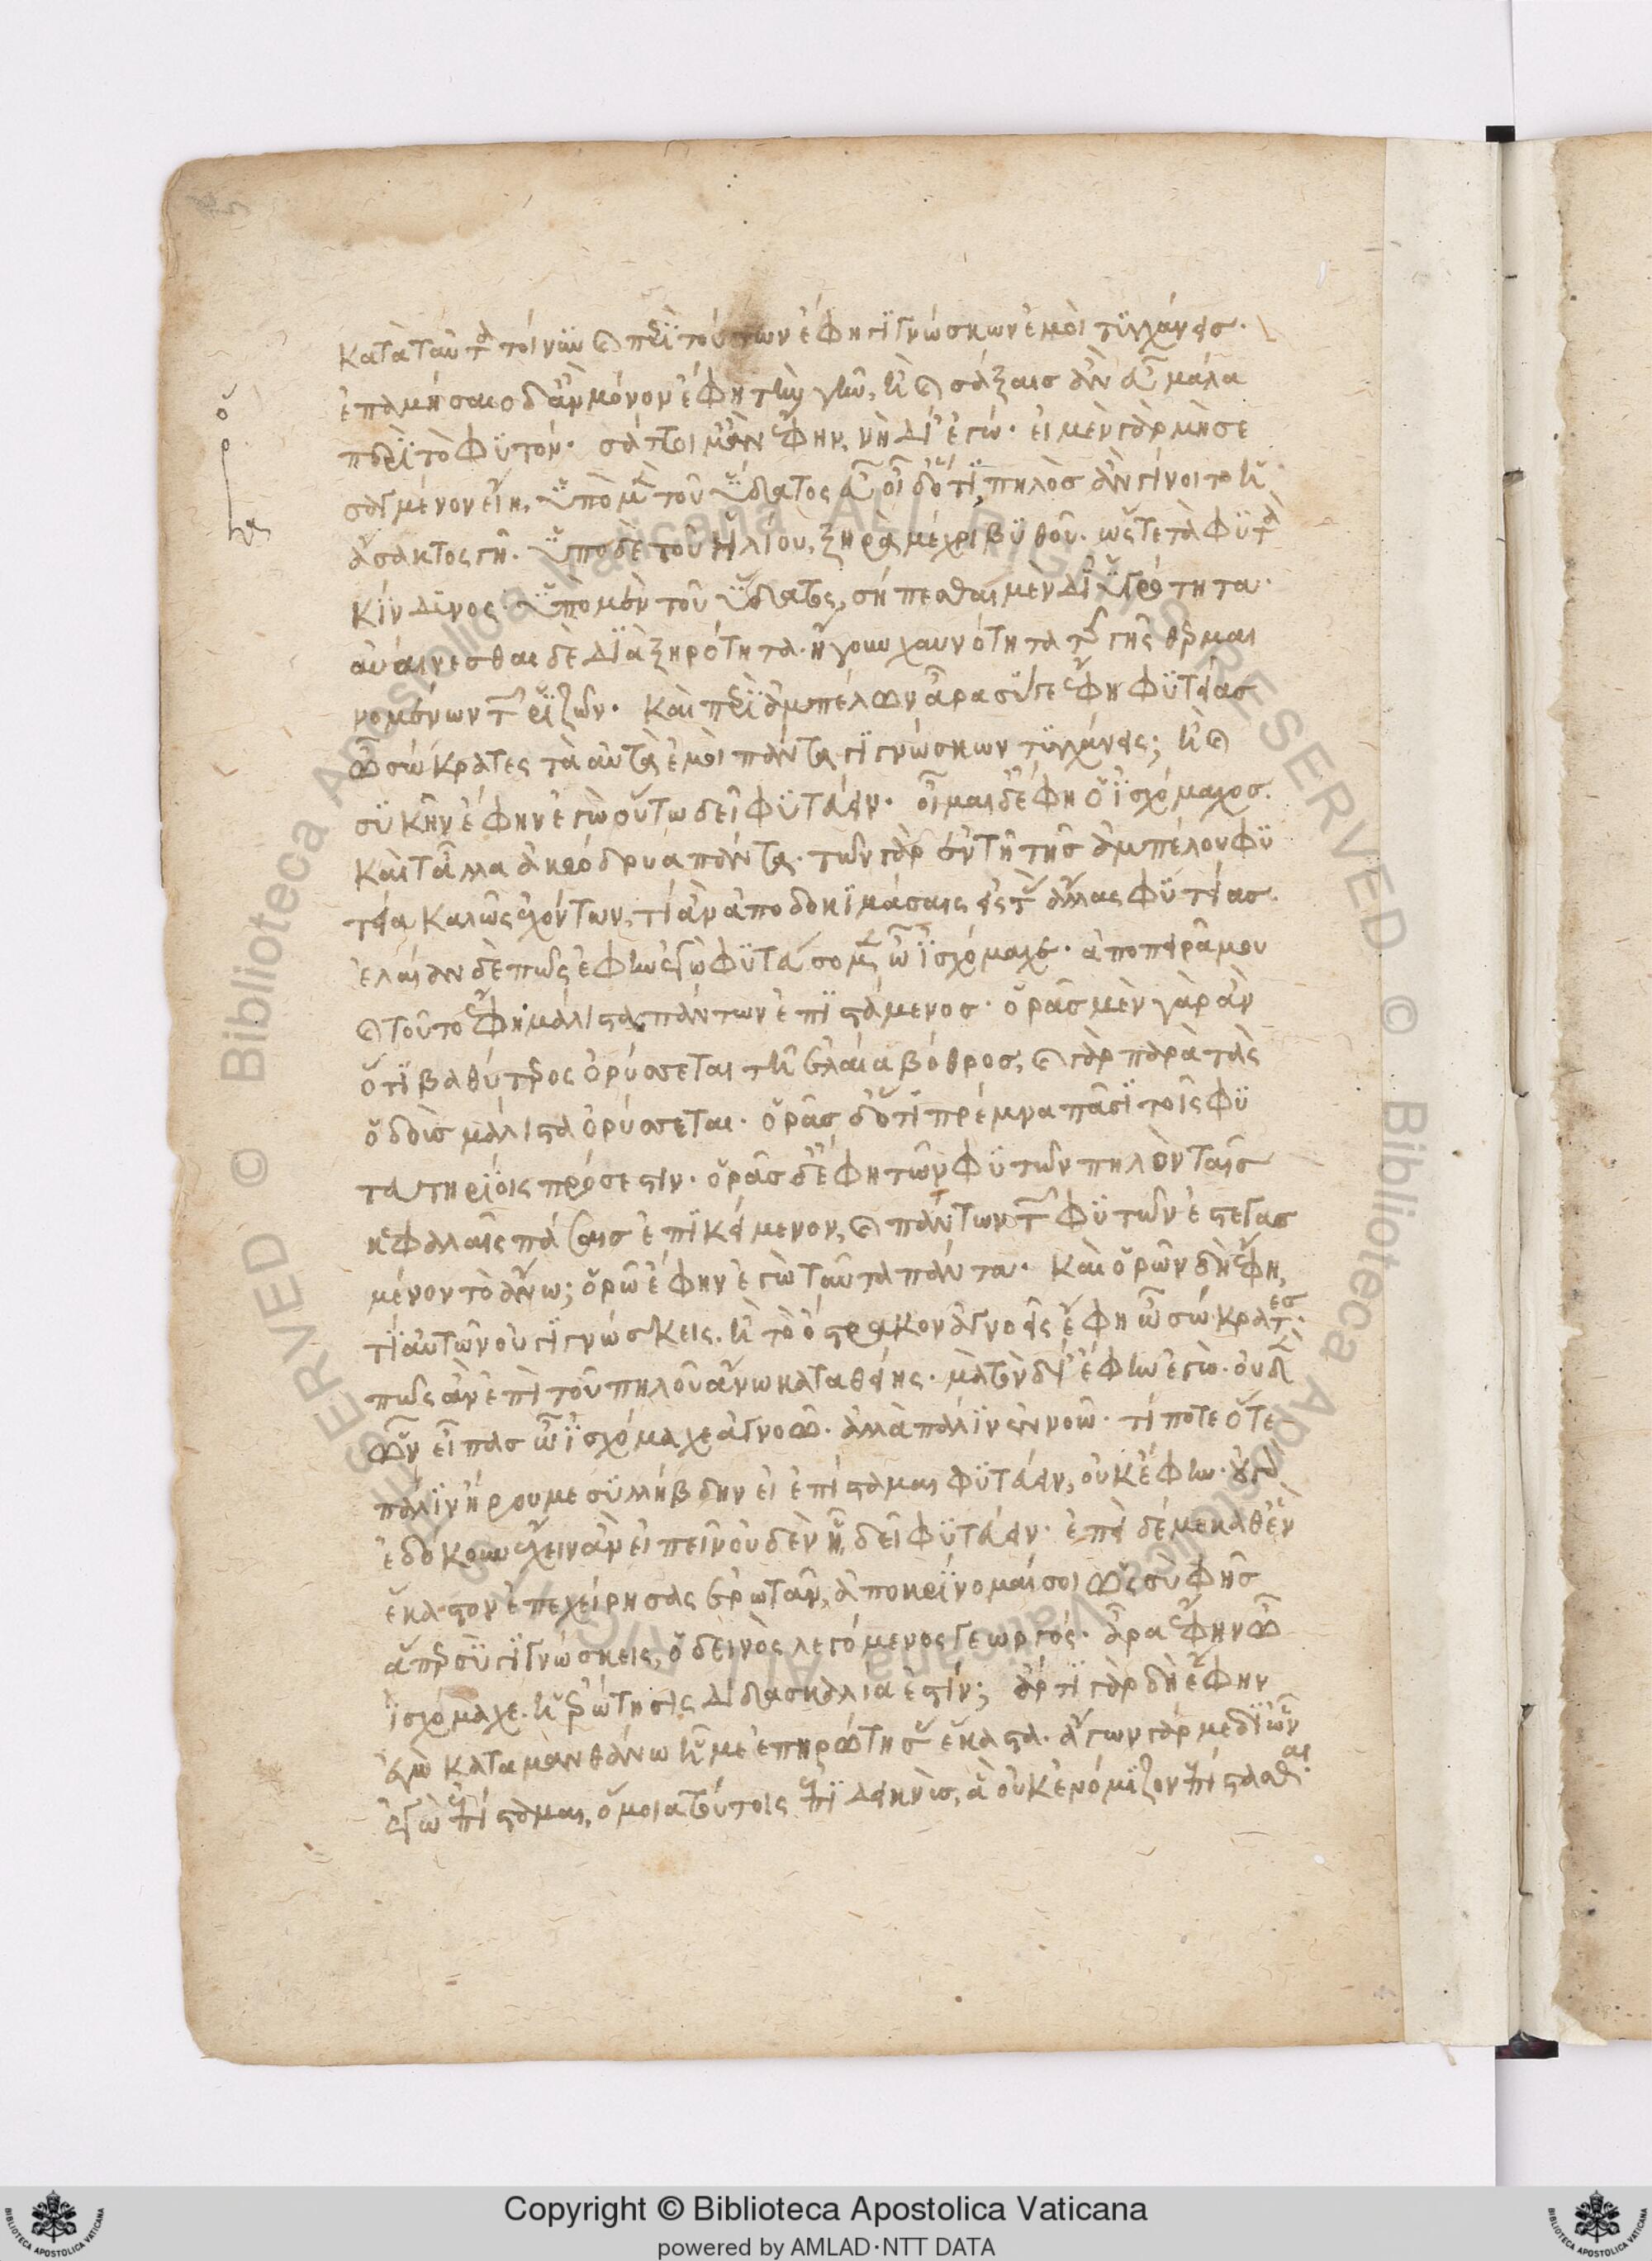 κατὰ ταὐτὰ τοίνυν καὶ περὶ τούτων ἔφη γιγνώσκων ἐμοὶ τυγχάνεις.
ἐπαμήσαιο δ' ἂν μόνον ἔφη τὴν γῆν, ἢ καὶ σάξαις ἂν εὖ μάλα
περὶ τὸ φυτόν. σάττοιμ' ἂν ἔφην, νὴ Δί' ἐγώ. εἰ μὲν γὰρ μὴ σε
σαγμένον εἴη, ὑπὸ μὲν τοῦ ὕδατος εὖ οἶδ' ὅτι πηλὸς ἂν γίγνοιτο ἡ
ἄσακτος γῆ. ὑπὸ δὲ τοῦ ἡλίου, ξηρὰ μέχρι βυθοῦ. ὥστε τὰ φυτὰ
κίνδυνος ὑπὸ μὲν τοῦ ὕδατος, σήπεσθαι μὲν δι' ὑγρότητα.
αὐαίνεσθαι δὲ διὰ ξηρότητα. ἤγουν χαυνότητα τῆς γῆς θερμαι
νομένων τῶν ῥιζῶν. καὶ περὶ ἀμπέλων ἄρα σύγε ἔφη φυτείας
ὦ σώκρατες τὰ αὐτὰ ἐμοὶ πάντα γιγνώσκων τυγχάνεις; ἢ καὶ
συκῆν ἔφην ἐγὼ οὕτω δεῖ φυτεύειν. οἶμαι δ' ἔφη ὁ ἰσχόμαχος.
καὶ τἆλλα ἀκρόδρυα πάντα. τῶν γὰρ ἐν τῇ τῆς ἀμπέλου φυ
τεία καλῶς ἐχόντων, τί ἂν ἀποδοκιμάσαις εἰς τὰς ἄλλας φυτείας.
ἐλαίαν δὲ πῶς ἔφην ἐγὼ φυτεύσομεν ὦ ἰσχόμαχε. ἀποπειρᾷ μου
καὶ τοῦτο ἔφη μάλιστα πάντων ἐπιστάμενος. ὁρᾷς μὲν γὰρ ἂν
ὅτι βαθύτερος ὀρύσσεται τῇ ἐλαία βόθρος, καὶ γὰρ παρὰ τὰς
ὁδοὺς μάλιστα ὀρύσσεται. ὁρᾷς δ' ὅτι πρέμνα πᾶσι τοῖς φυ
τευτηρίοις πρόσεστιν. ὁρᾷς δ' ἔφη τῶν φυτῶν πηλὸν ταῖς
κεφαλαῖς πάσαις ἐπικείμενον, καὶ πάντων τῶν φυτῶν ἐστεγασ
μένον τὸ ἄνω; ὁρῶ ἔφην ἐγὼ ταῦτα πάντα. καὶ ὁρῶν δὴ ἔφη,
τί αὐτῶν οὐ γιγνώσκεις. ἢ τὸ ὄστρακον ἀγνοεῖς ἔφη ὦ σώκρατες.
πῶς ἂν ἐπὶ τοῦ πηλοῦ ἄνω καταθείης. μὰ τὸν δί' ἔφην ἐγώ. οὐδὲν
ὧν εἶπας ὦ ἰσχόμαχε ἀγνοῶ. ἀλλὰ πάλιν ἐννοῶ. τί ποτε ὅτε
πάλιν ἤρου με συλλήβδην εἰ ἐπίσταμαι φυτεύειν, οὐκ ἔφην. οὐ γὰρ
ἐδόκουν ἔχειν ἂν εἰπεῖν οὐδὲν ᾗ δεῖ φυτεύειν. ἐπεὶ δέ με καθ' ἓν
ἕκαστον ἐπεχείρησας ἐρωτᾶν, ἀποκρίνομαί σοι ὡς σὺ φῂς
ἅπερ σὺ γιγνώσκεις, ὁ δεινὸς λεγόμενος γεωργός. ἆρα ἔφην ὦ
ἰσχόμαχε. ἡ ἐρώτησις διδασκαλία ἐστίν; ἄρτι γὰρ δὴ ἔφην
ἐγὼ καταμανθάνω ᾗ με ἐπηρώτησας ἕκαστα. ἄγων γάρ με δι' ὧν
ἐγὼ ἐπίσταμαι, ὅμοια τούτοις ἐπιδεικνὺς, ἃ οὐκ ἐνόμιζον ἐπίστασθαι.
Copyright © Biblioteca Apostolica Vaticana
powered by AMLAD·NTT DATA